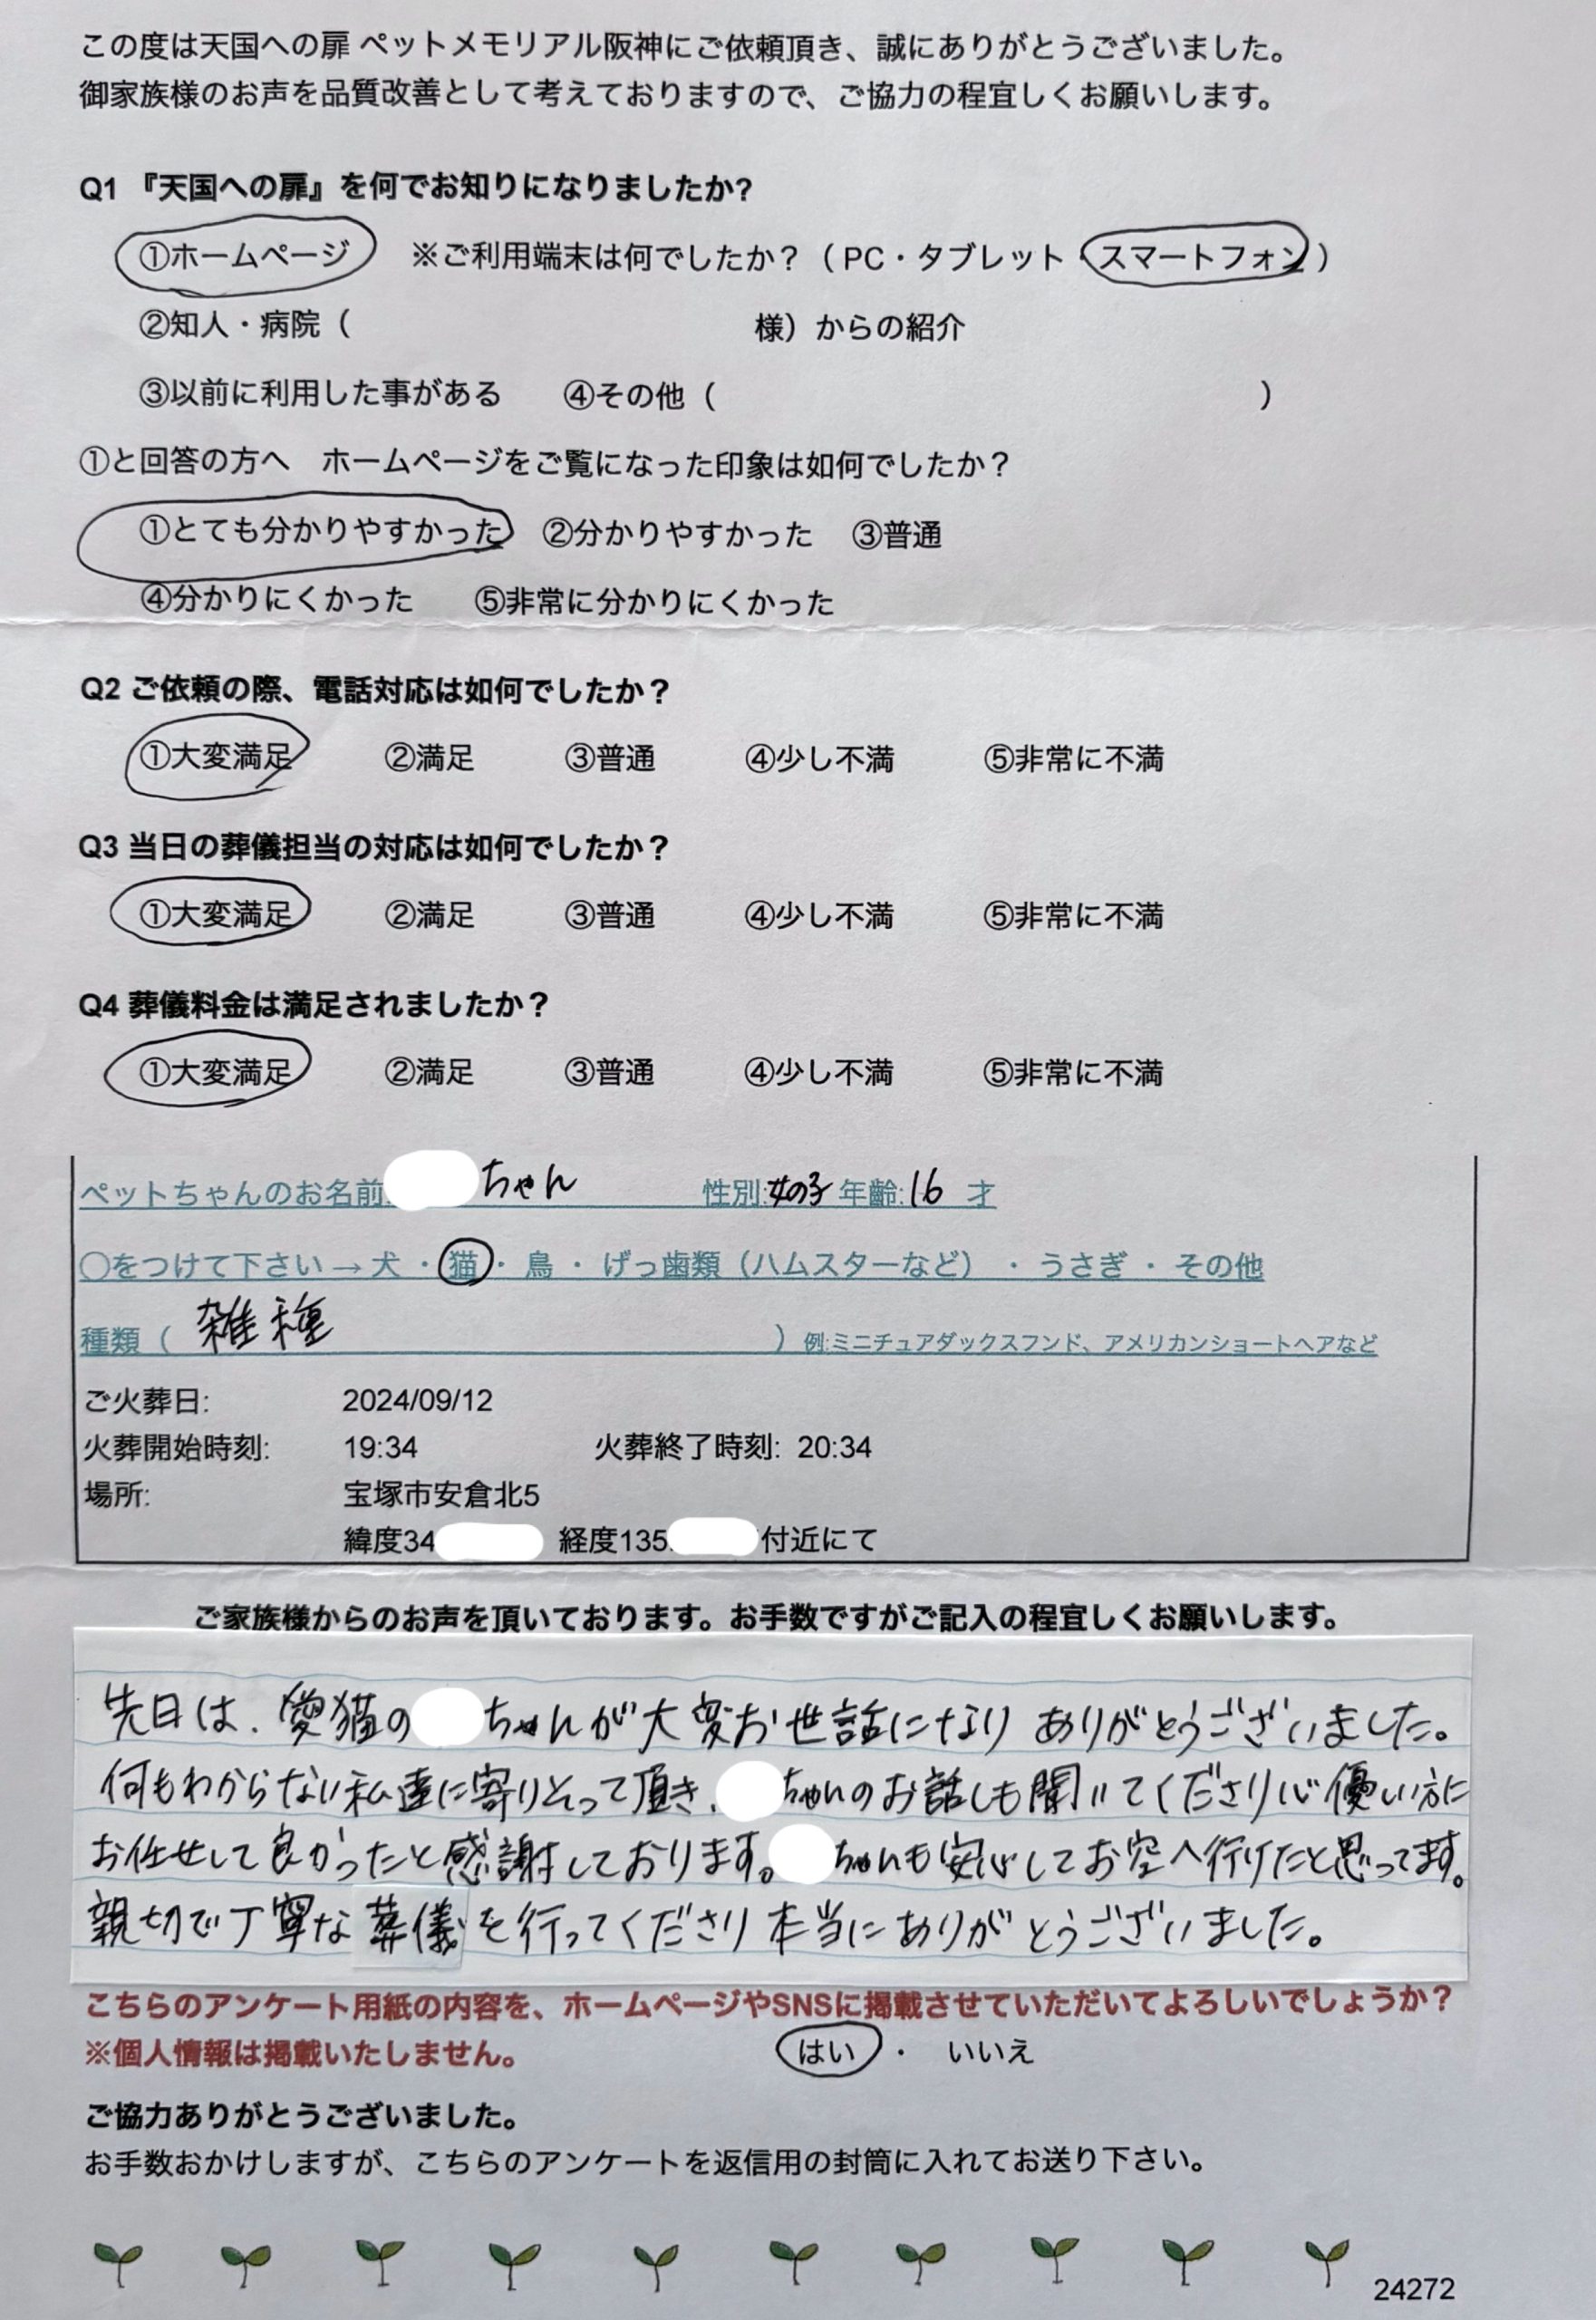 この度は天国への扉 ペットメモリアル阪神にご依頼頂き、誠にありがとうございました。
御家族様のお声を品質改善として考えておりますので、ご協力の程宜しくお願いします。
Q1 『天国への扉』を何でお知りになりましたか?
①ホームページ ※ご利用端末は何でしたか？（PC・タブレット・スマートフォン）
②知人・病院（ 様）からの紹介
③以前に利用した事がある ④その他（ ）
①と回答の方へ ホームページをご覧になった印象は如何でしたか？
①とても分かりやすかった ②分かりやすかった ③普通
④分かりにくかった ⑤非常に分かりにくかった
Q2 ご依頼の際、電話対応は如何でしたか？
①大変満足 ②満足 ③普通 ④少し不満 ⑤非常に不満
Q3 当日の葬儀担当の対応は如何でしたか？
①大変満足 ②満足 ③普通 ④少し不満 ⑤非常に不満
Q4 葬儀料金は満足されましたか？
①大変満足 ②満足 ③普通 ④少し不満 ⑤非常に不満
ペットちゃんのお名前: ちゃん 性別:女の子 年齢:16 才
○をつけて下さい→ 犬 ・ 猫 ・ 鳥 ・ げっ歯類（ハムスターなど） ・ うさぎ ・ その他
種類（ 雑種 ）例:ミニチュアダックスフンド、アメリカンショートヘアなど
ご火葬日: 2024/09/12
火葬開始時刻: 19:34 火葬終了時刻: 20:34
場所: 宝塚市安倉北5
緯度34 経度135. 付近にて
ご家族様からのお声を頂いております。お手数ですがご記入の程宜しくお願いします。
先日は、愛猫の ちゃんが大変お世話になり ありがとうございました。
何もわからない私達に寄りそって頂き、 ちゃんのお話しも聞いてくださり心優しい方に
お任せして良かったと感謝しております。 ちゃんも安心してお空へ行けたと思ってます。
親切で丁寧な葬儀を行ってくださり本当にありがとうございました。
こちらのアンケート用紙の内容を、ホームページやSNSに掲載させていただいてよろしいでしょうか？
※個人情報は掲載いたしません。 はい ・ いいえ
ご協力ありがとうございました。
お手数おかけしますが、こちらのアンケートを返信用の封筒に入れてお送り下さい。
24272